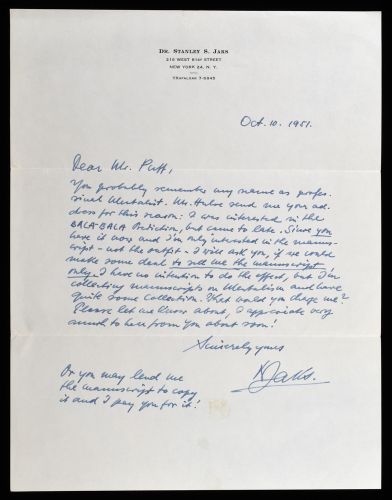 DR. STANLEY S. JAKS
215 WEST 91ST STREET
NEW YORK 24, N. Y.
TRAFALGAR 7-5645
Oct. 10. 1951.
Dear Mr. Puff,
You probably remember my name as profes-
sional Mentalist. Mr. Hulse send me your ad-
dress for this reason: I was interested in the
BALA-BALA Prediction, but came to late. Since you
have it now and I'm only interested in the manus-
cript - not the outfit - I will ask you, if we could
make some deal to sell me the manuscript
only. I have no intention to do the effect, but I'm
collecting manuscripts on Mentalism and have
quite some Collection. What would you charge me?
Please let me know about, I appreciate very
much to hear from you about soon!
Sincerely yours
SJaks.
Or you may lend me
the manuscript to copy
it and I pay you for it!